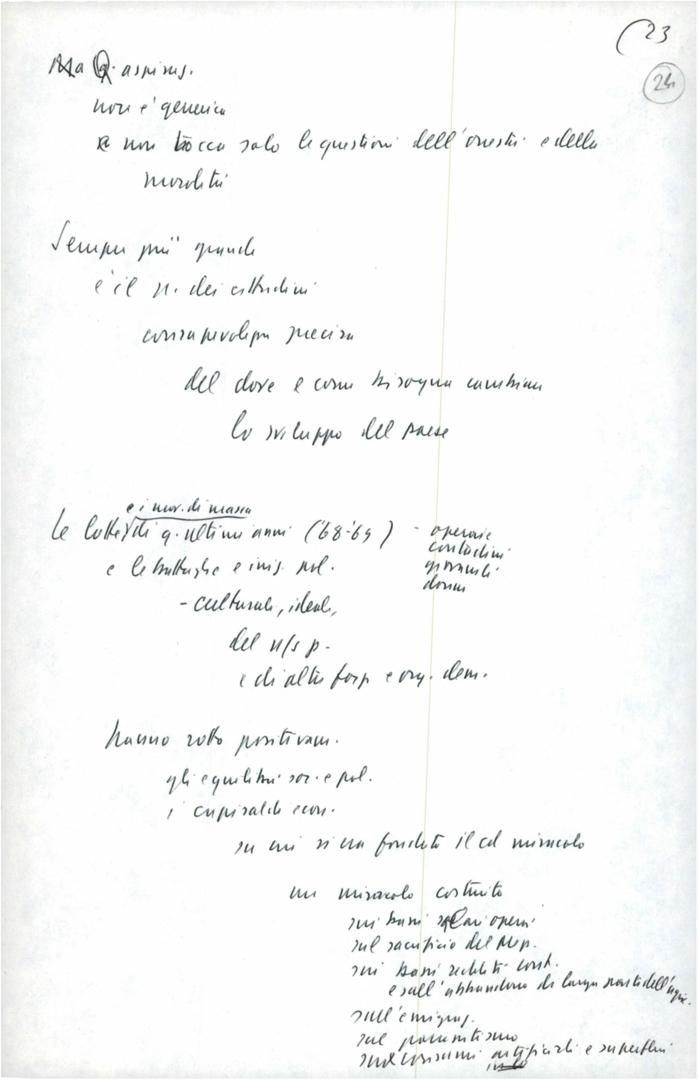 (23
24
Ma Q. aspiraz.
non è generica
e non tocca solo le questioni dell'onestà e della
moralità
Sempre più grande
è il n. dei cittadini
consapevoli precisa
del dove e come bisogna cambiare
lo sviluppo del paese
e i mov. di massa
Le lotte di q. ultimi anni ('68-'69) - operaie
contadini
giovanili
donne
e le battaglie e iniz. pol.
- culturali, ideali,
del n/s p.
e di altre forze e org. dem.
hanno rotto positivam.
gli equilibri soc. e pol.
i capisaldi econ.
su cui si era fondato il cd miracolo
un miracolo costruito
sui bassi salari operai
sul sacrificio del
sui bassi redditi cont.
e sull'abbandono di larga parte dell'agric.
sull'emigraz.
sul parassitismo
sui consumi artificiali e superflui